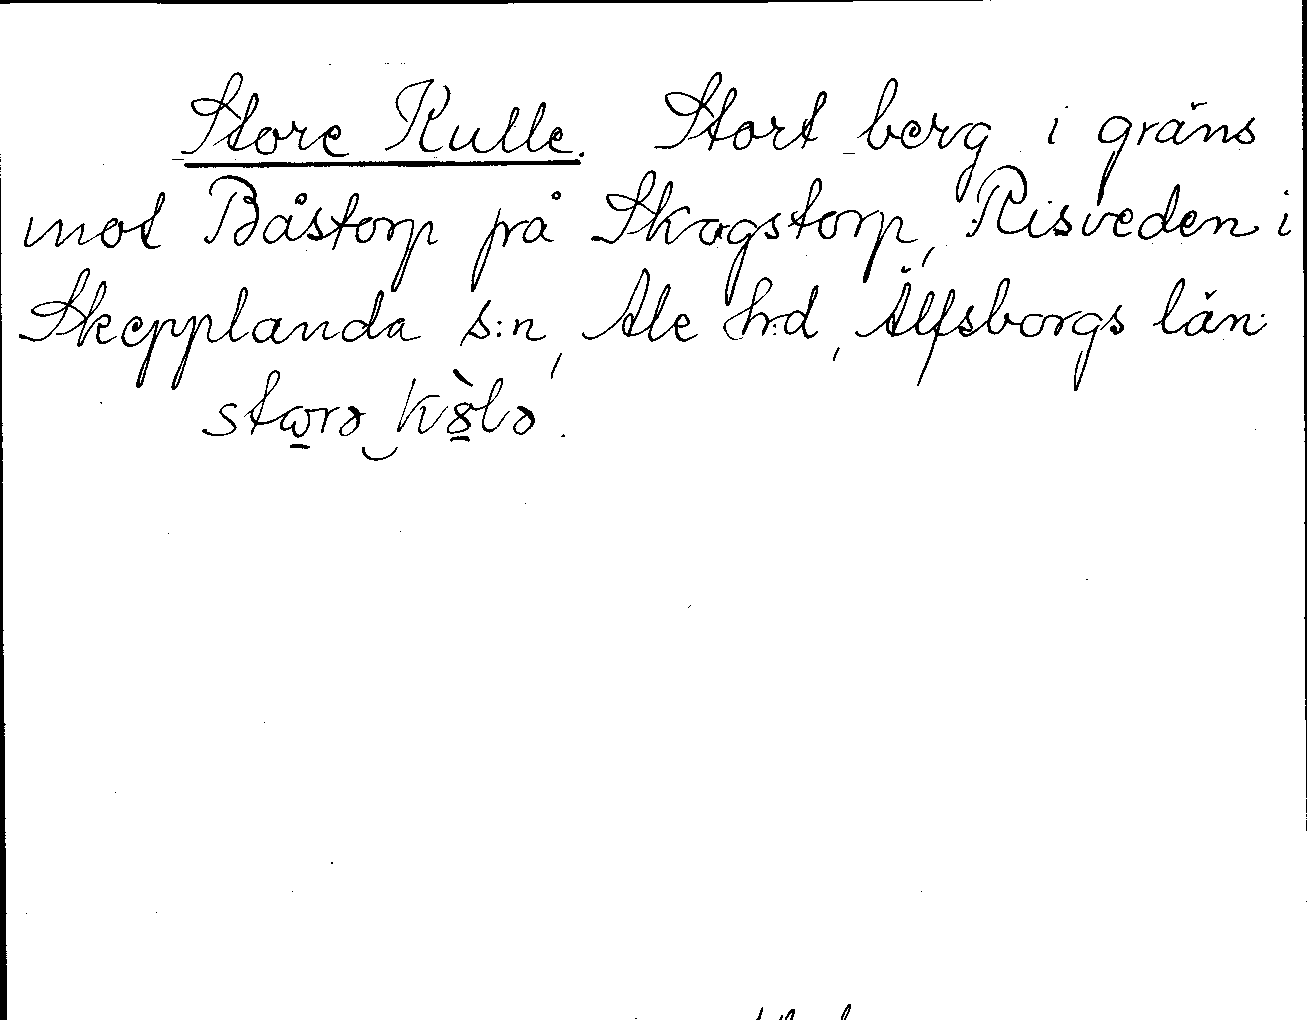 Store Kulle. Stort berg i gräns
mot Båstorp på Skogstorp, Risveden i
Skepplanda s:n, Ale h:d, Älfsborgs län.